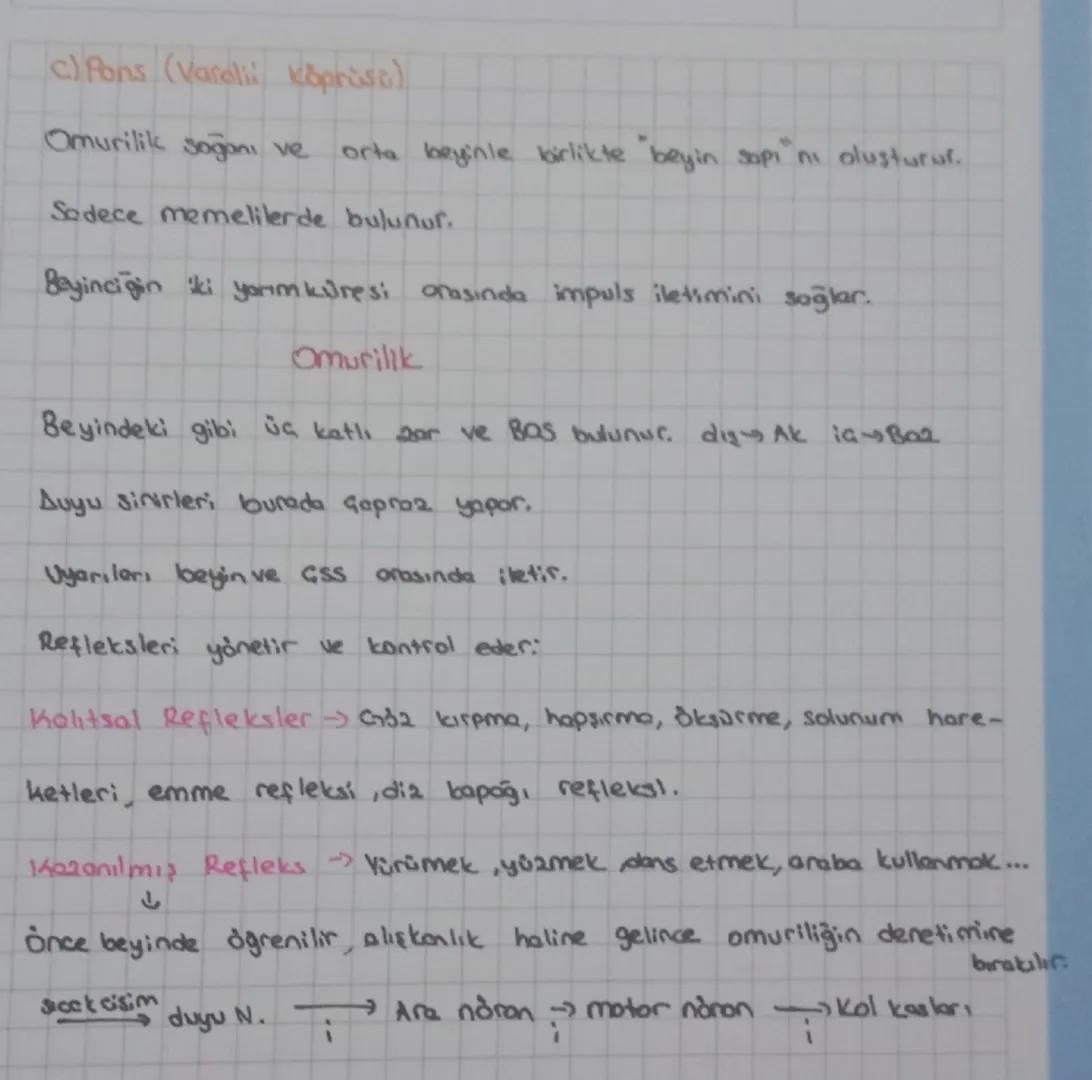 c) Pons (Varolii köprüsü)
Omurilik soğanı ve orta beyinle birlikte "beyin sapı"nı oluşturur.
Sadece memelilerde bulunur.
Beyinciğin iki yarımküresi arasında impuls iletimini sağlar.
Omurilik
Beyindeki gibi üç katlı zar ve BOS bulunur. dış→Ak iç→Boz
Duyu sinirleri burada çapraz yapar.
Uyarıları beyin ve ÇSS arasında iletir.
Refleksleri yönetir ve kontrol eder:
Kalıtsal Refleksler → Göz kırpma, hapşırma, öksürme, solunum hare-
ketleri, emme refleksi, diz kapağı refleksi.
Kazanılmış Refleks → Yürümek, yüzmek, dans etmek, araba kullanmak...
↓
Önce beyinde öğrenilir, alışkanlık haline gelince omuriliğin denetimine
bırakılır.
sıcak cisim → duyu N. → i Ara nöron → i motor nöron → i Kol kasları